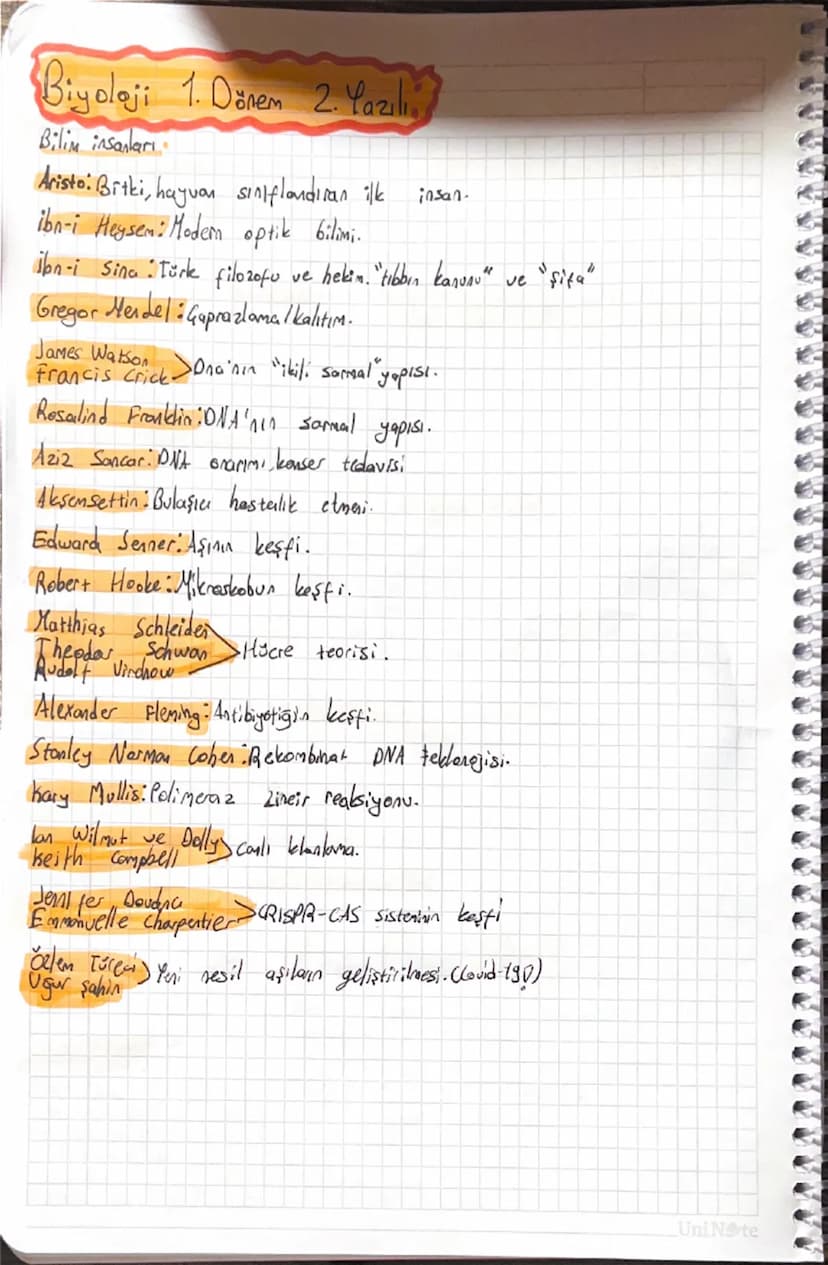 Biyoloji 1. Dönem 2. Yazılı
Bilim insanları:
Aristo: Bitki, hayvan sınıflandıran ilk insan.
ibn-i Heysem: Modern optik bilimi.
ibn-i Sina: Türk filozofu ve hekim. "tıbbın kanunu" ve "Şifa"
Gregor Mendel: Çaprazlama/kalıtım.
James Watson
Francis Crick > Dna'nın "ikili sarmal" yapısı.
Rosalind Franklin: DNA'nın sarmal yapısı.
Aziz Sancar: DNA onarımı, kanser tedavisi
Akşemsettin: Bulaşıcı hastalık etmeni.
Edward Jenner: Aşının keşfi.
Robert Hooke: Mikroskobun keşfi.
Matthias Schleiden
Theodor Schwan > Hücre teorisi.
Rudolf Virchow
Alexander Fleming: Antibiyotiğin keşfi.
Stanley Norman Cohen: Rekombinat DNA teknolojisi.
Kary Mullis: Polimeraz zincir reaksiyonu.
Ian Wilmut ve Dolly
Keith Campbell > Canlı klonlama.
Jennifer Doudna
Emmanuelle Charpentier > CRISPR-CAS sisteminin keşfi
Özlem Türeci
Uğur Şahin > Yeni nesil aşıların geliştirilmesi. (Covid-19)
UniNote